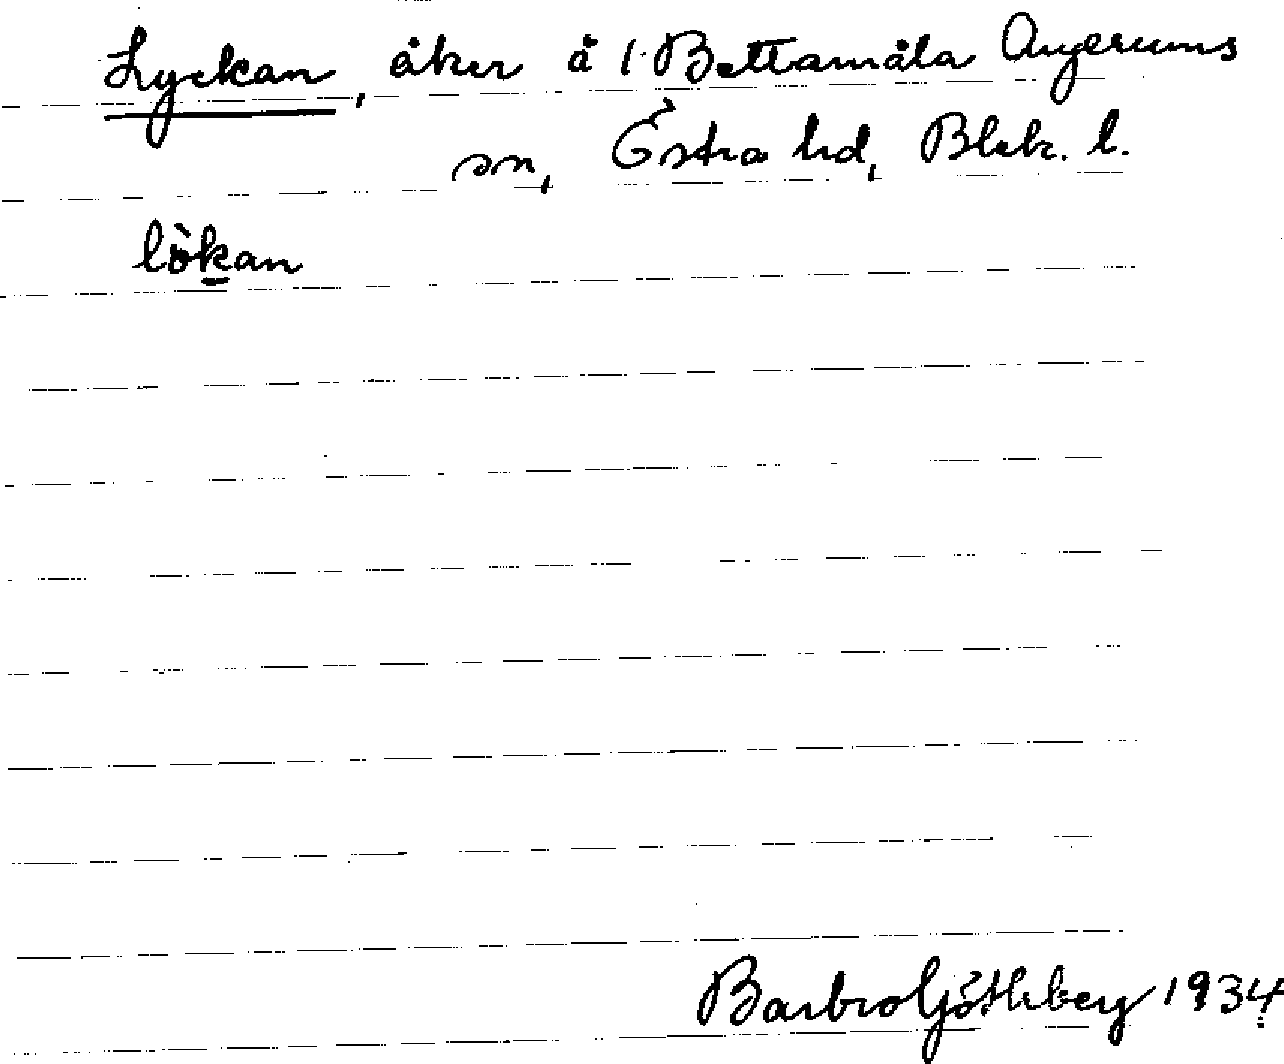 Lyckan, åker å 1 Bettamåla Augerums
sn, Östra hd, Blek. l.
lökan
Barbro Göthberg 1934